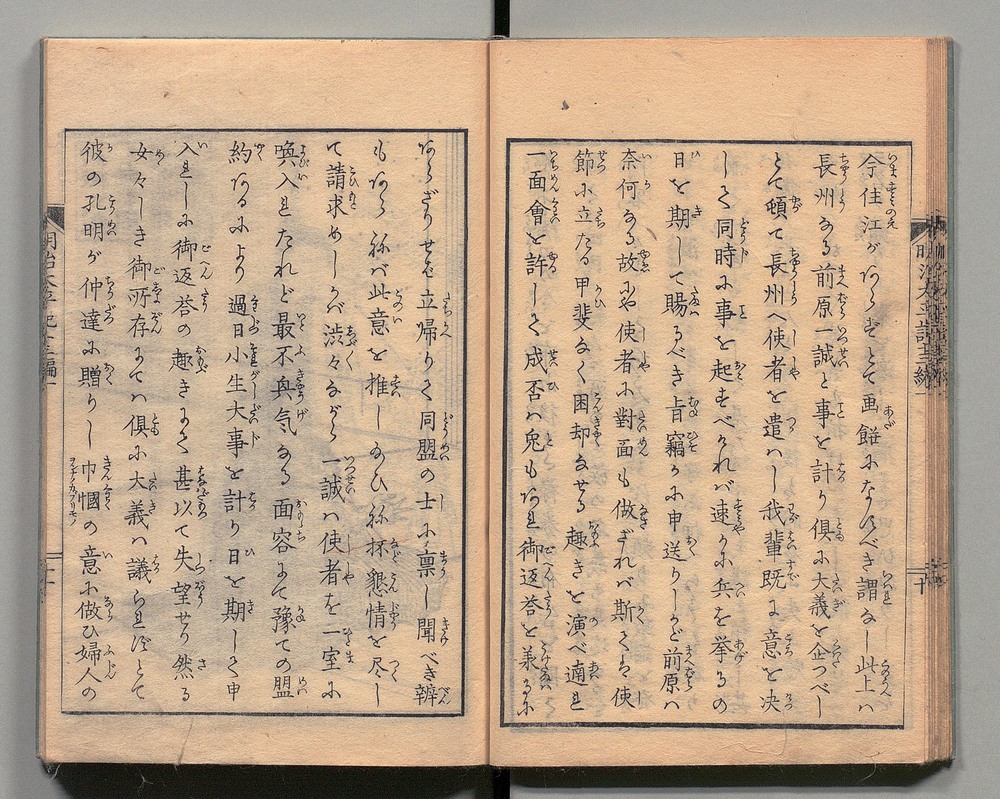 今住江があらずとて画餠になすべき謂なし此上ハ
長州なる前原一誠と事を計り倶に大義を企つべし
とて頓て長州へ使者を遣ハし我輩既に意を决
しく同時に事を起すべければ速かに兵を挙るの
日を期して賜るべき旨竊かに申送りしかど前原ハ
奈何なる故にや使者に對面も做ざれば斯てハ使
節に立たる甲斐なく困却なせる趣きを演べ適よ
一面會を許して成否ハ兎もあれ御返答を義るに
あらざりせバ立帰りて同盟の士に禀し聞べき辤
もあらねば此意を推し給ひね抔懇情を尽し
て請求めしかバ渋々ながら一誠ハ使者を一室に
喚入れたれど最不興気なる面容にて豫ての盟
約あるにより過日小生大事を計り日を期して申
入れしに御返答の趣きにてハ甚以て失望せり然る
女々しき御所存にてハ倶に大義ハ議られずとて
彼の孔明が仲達に贈りし巾幗の意に做ひ婦人の
明治太平記十三編一